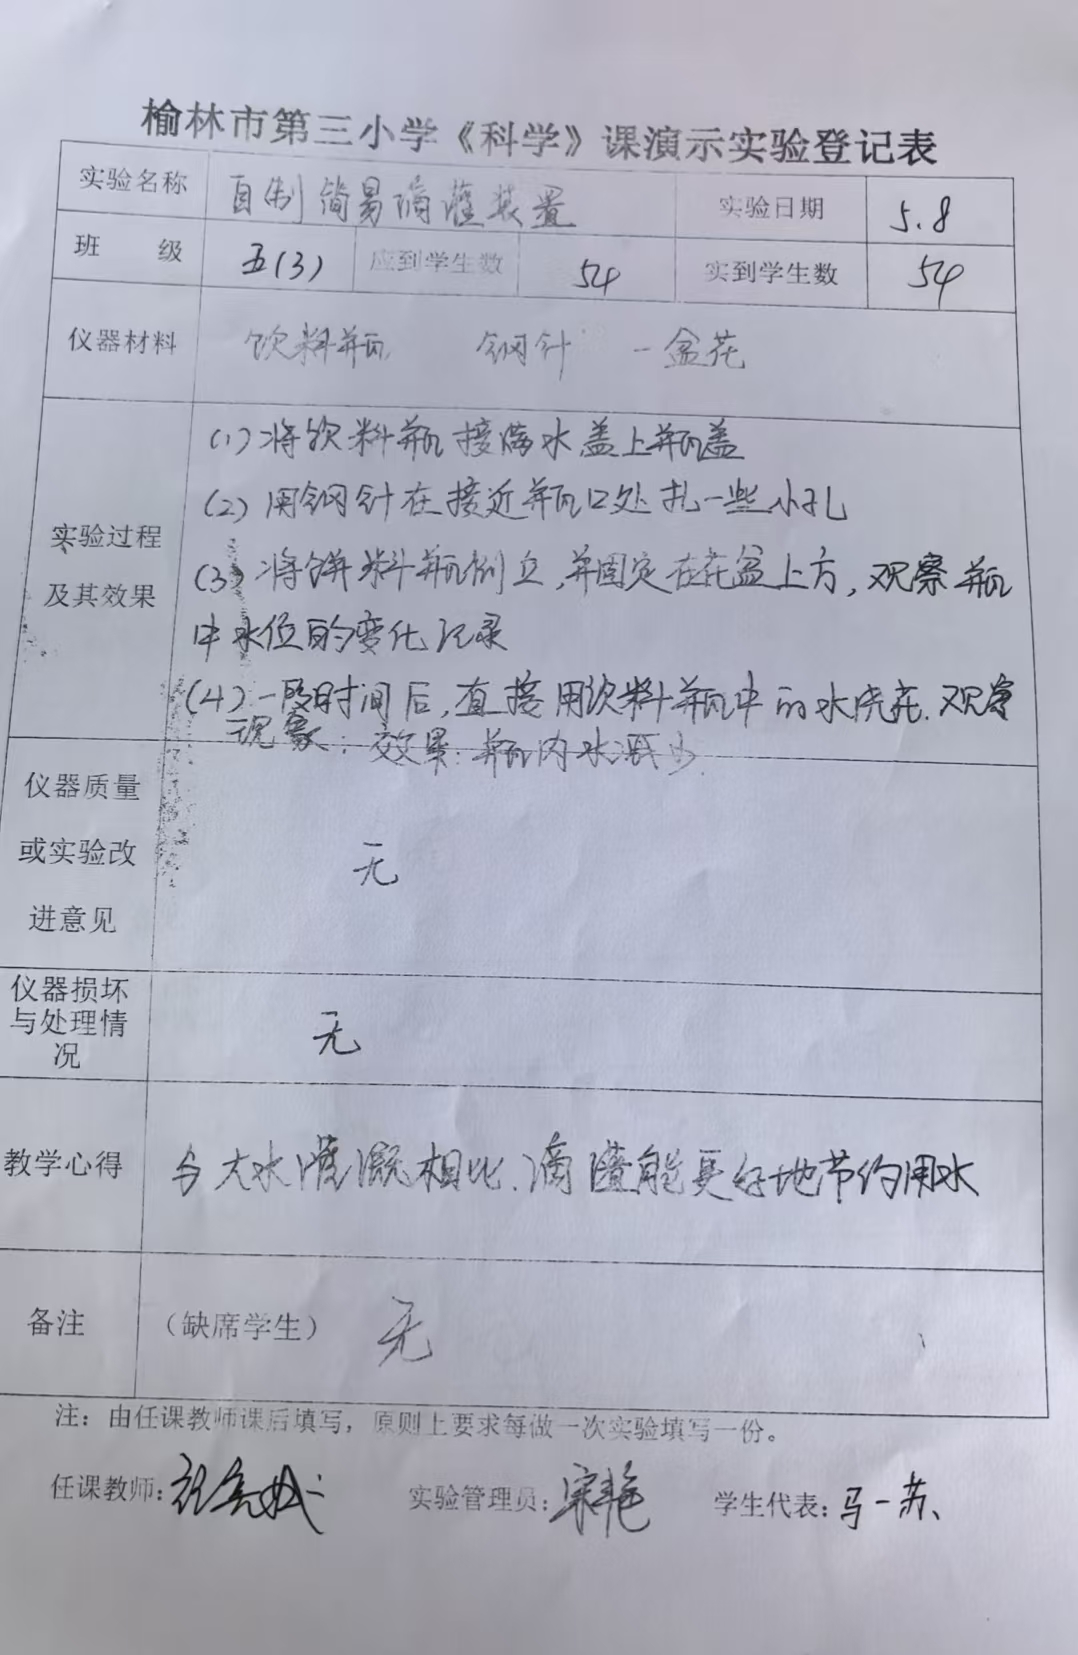 榆林市第三小学《科学》课演示实验登记表
实验名称 自制简易滴灌装置 实验日期 5.8
班 级 五(3) 应到学生数 54 实到学生数 54
仪器材料 饮料瓶 钢针 一盆花
(1)将饮料瓶接满水盖上瓶盖
(2)用钢针在接近瓶口处扎一些小孔
实验过程
及其效果
(3)将饮料瓶倒立,并固定在花盆上方,观察瓶
中水位的变化记录
(4)一段时间后,直接用饮料瓶中的水浇花.观察
现象;效果:瓶内水减少.
仪器质量
或实验改
进意见
无
仪器损坏
与处理情
况
无
教学心得 与大水灌溉相比.滴灌能更好地节约用水
备注 (缺席学生) 无
注:由任课教师课后填写,原则上要求每做一次实验填写一份。
任课教师: 实验管理员:宋艳 学生代表:马一苏